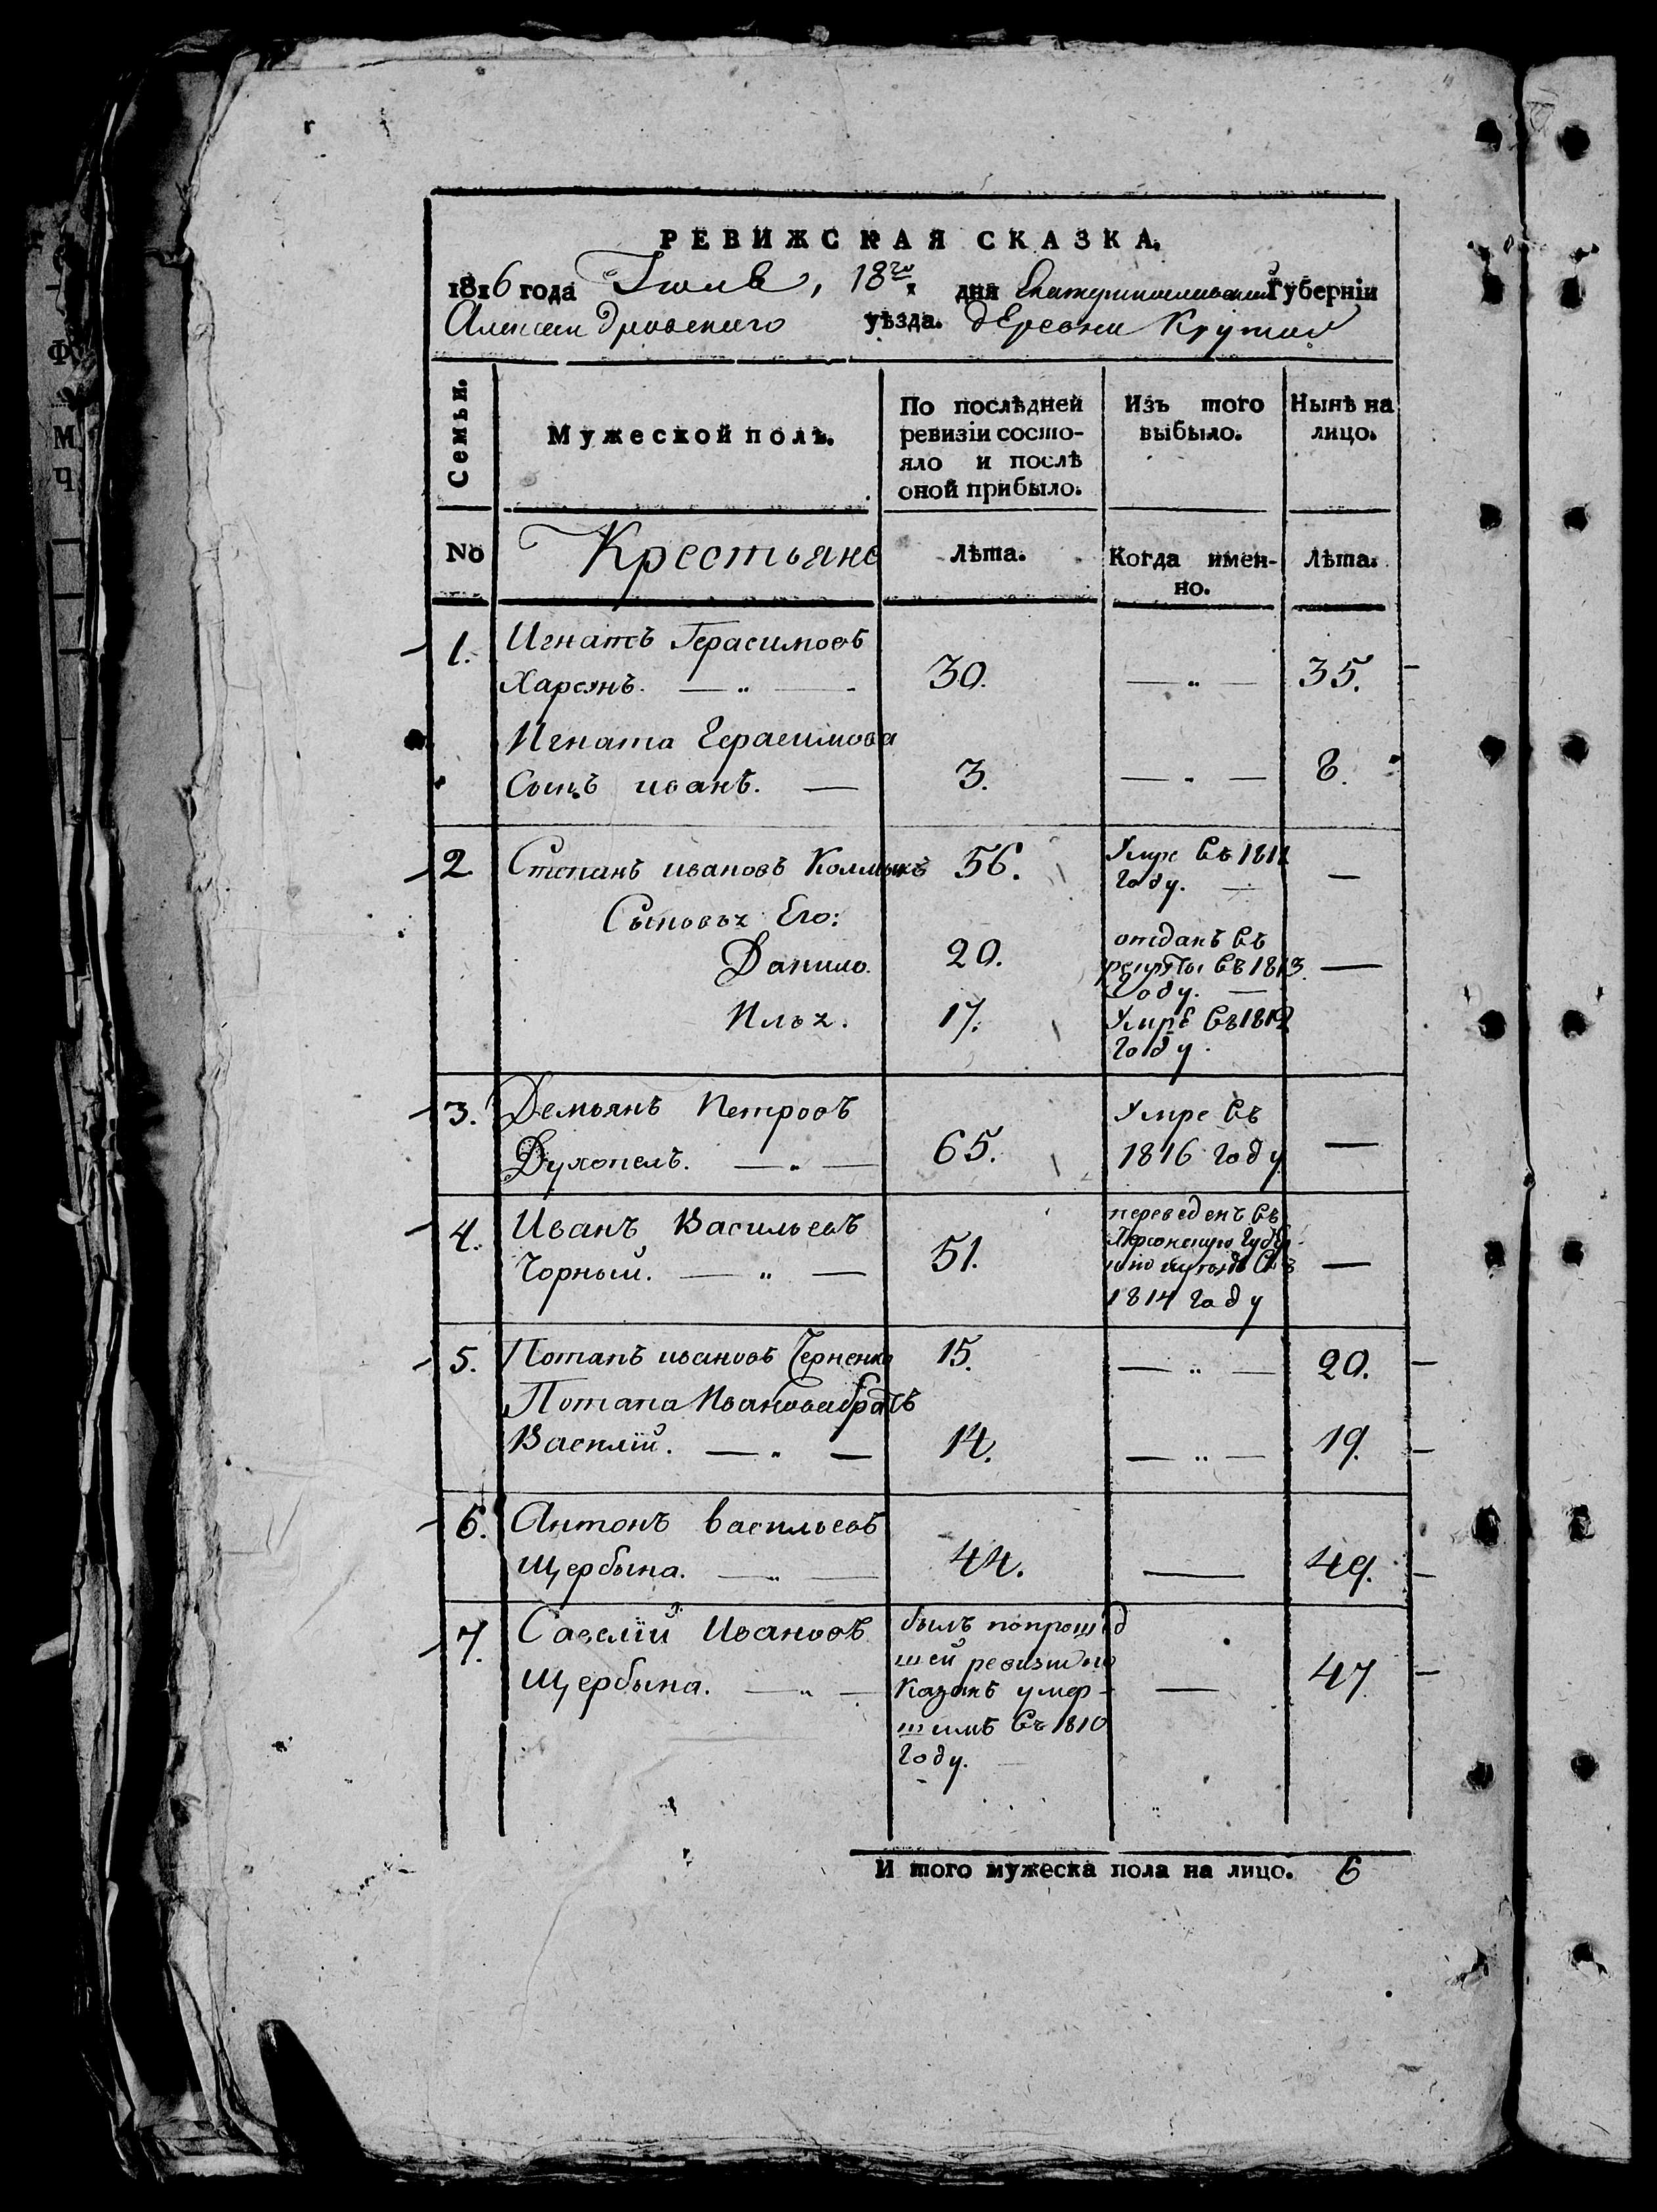 РЕВИЖСКАЯ СКАЗКА.
1816 года Іюля, 18го дня Екатеринославской Губерніи
Александровского уѣзда. деревни Крутой
Семьи.
Мужеской полъ.
По послѣдней
ревизіи состо-
яло и послѣ
оной прибыло.
Изъ того
выбыло.
Нынѣ на
лицо.
No
Крестьяне
Лѣта.
Когда имен-
но.
Лѣта.
1. Игнатъ Герасимовъ
Харсунъ. — „ — 30. — „ — 35.
Игната Герасимова
Сынъ иванъ. — 3. — „ — 8.
2 Степанъ ивановъ Колмыкъ 56. Умре въ 1811
году. —
Сыновья Его:
Данило. 20. отданъ въ
рекруты въ 1813
году. — —
Илья. 17. Умре въ 1812
году.
3. Демьянъ Петровъ
Духопелъ. — „ — 65. Умре въ
1816 году —
4. Иванъ Васильевъ
Чорный. — „ — 51. переведенъ въ
Херсонскую Губер
нію въ
1814 году —
5. Потапъ ивановъ Черненко 15. — „ — 20.
Потапа Иванова братъ
Василій. — „ — 14. — „ — 19.
6. Антонъ васильевъ
Щербына. — „ — 44. — 49.
7. Савелій Ивановъ
Щербына. — „ —
былъ попрошед
шей ревизіи по
казанъ умер-
шимъ въ 1810
году.
— 47
И того мужеска пола на лицо. 6
Ф
М
Ч